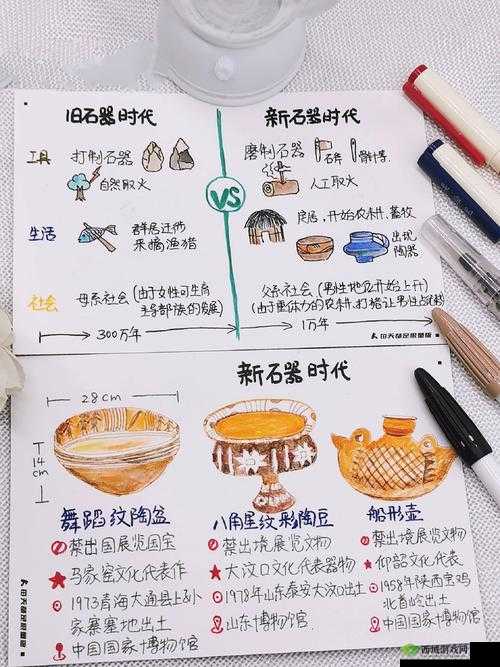 旧石器时代
新石器时代
VS
工具
打制石器
自然取火
磨制石器
石斧
骨针等
人工取火
生活
群居迁徙
采摘渔猎
房居,开始农耕、畜牧
出现
陶器
社会
母系社会(由于女性可生育
主导部族的发展)
父系社会(男性地位开始上升)
(由于重体力的农耕、打猎让男性占优势)
300万年
1万年
新石器时代
28cm
14
cm
舞蹈纹陶盆
禁出国展览国宝
马家窑文化代表作
1973青海大通县上孙
家寨墓地出土
中国国家博物馆
八角星纹彩陶豆
禁出境展览文物
大汶口文化代表器物
1978年山东泰安大汶口出土
山东博物馆
船形壶
禁出境展览文物
仰韶文化代表
1958年陕西宝鸡
北首岭出土
中国国家博物馆
西域游戏网